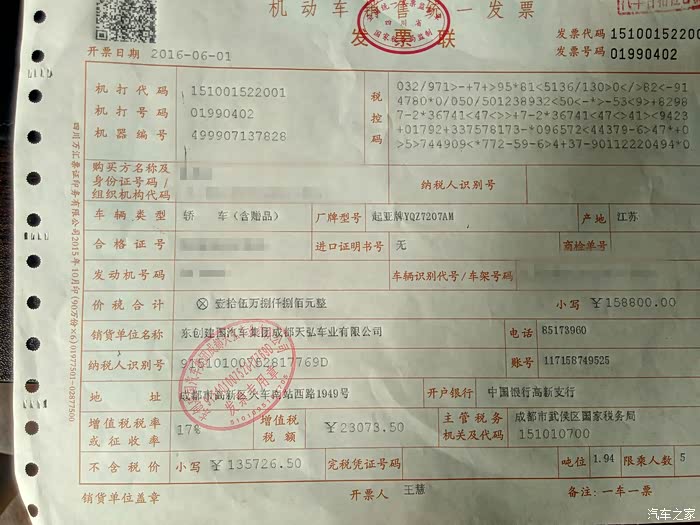 机动车销售统一发票
发票联
发票代码 151001522001
发票号码 01990402
开票日期 2016-06-01
机打代码 151001522001
机打号码 01990402
机器编号 499907137828
税控码
032/971>-+7+>95*81<5136/130>0</>82<-91
4780*0/050/501238932<50<-*>-53<9>+8298
7-2*36741<47<>>+7-2*36741<47<>41>2<9423
+01792+337578173-*096572<44379-6>47*+0
>5>744909<*772-59-6>4+37-90112220494*0
购买方名称及
身份证号码/
组织机构代码
纳税人识别号
车辆类型 轿 车(含赠品) 厂牌型号 起亚牌YQZ7207AM 产地 江苏
合格证号 进口证明书号 无 商检单号
发动机号码 车辆识别代号/车架号码
价税合计 ⊗ 壹拾伍万捌仟捌佰元整 小写 ¥158800.00
销货单位名称 东创建国汽车集团成都天弘车业有限公司 电话 85173960
纳税人识别号 账号 117158749525
地 址 成都市高新区火车南站西路1949号 开户银行 中国银行高新支行
增值税税率
或征收率
17%
增值税
税额
¥23073.50
主管税务
机关及代码
成都市武侯区国家税务局
151010700
不含税价 小写 ¥135726.50 完税凭证号码 吨位 1.94 限乘人数 5
销货单位盖章 开票人 王慧 备注:一车一票
四川万汇票证印务有限公司2015年10月印(90万份×6)01977501-02877500
发票专用章
汽车之家